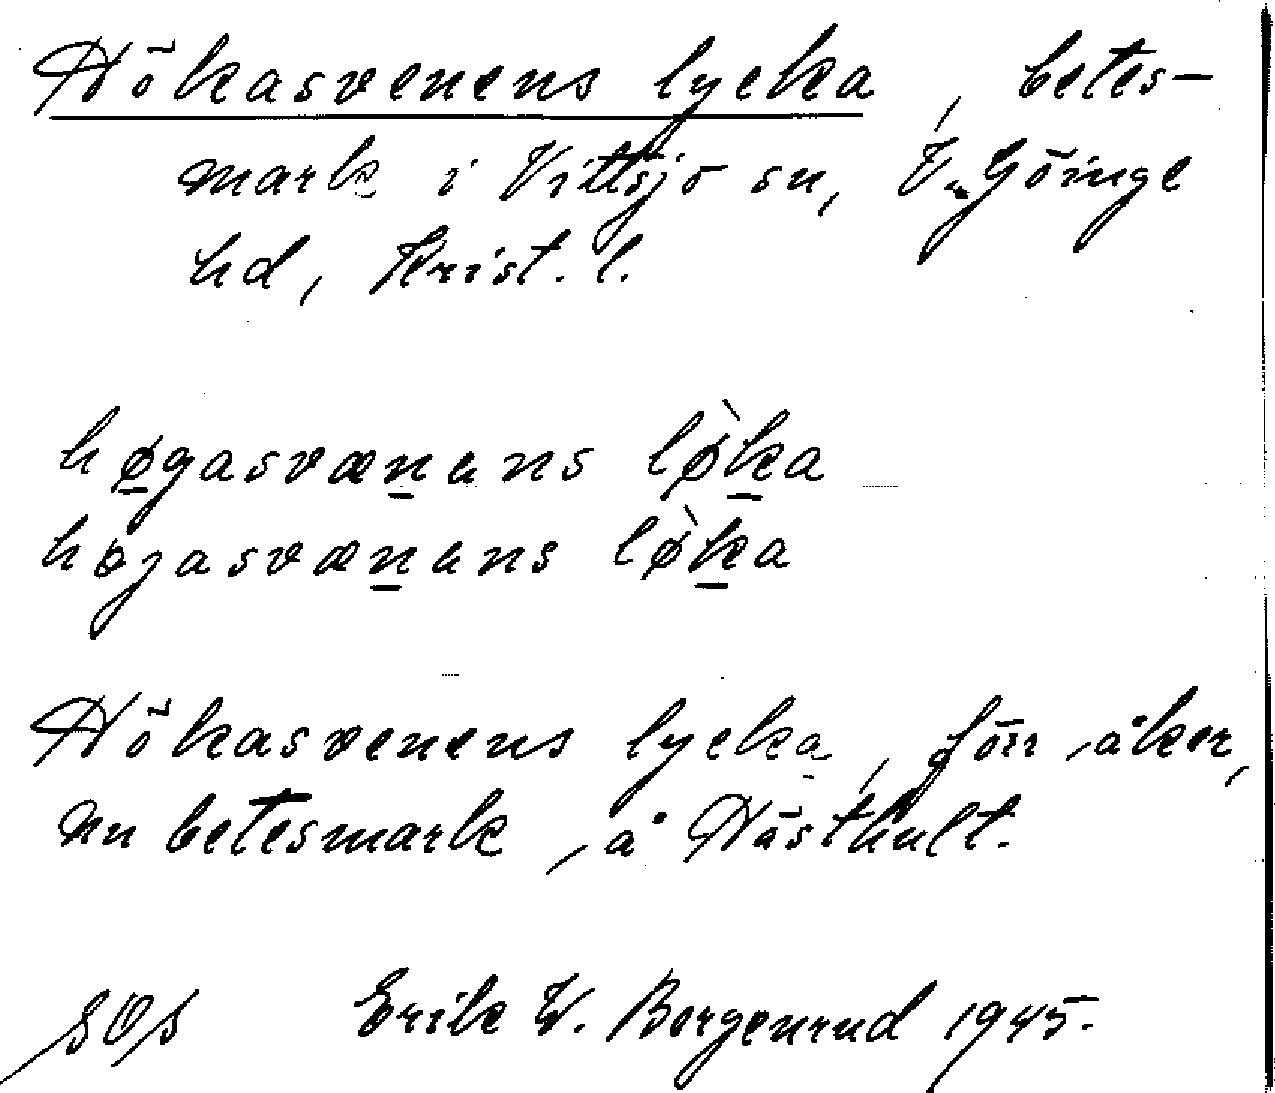 Hökasvenens lycka, betes-
mark i Vittsjö sn, V. Göinge
hd, Krist. l.
høgasvænans lø̀ka
højasvænans lø̀ka
Hökasvenens lycka, förr åker,
nu betesmark, å Hästhult.
SOS Erik W. Borgenrud 1945.